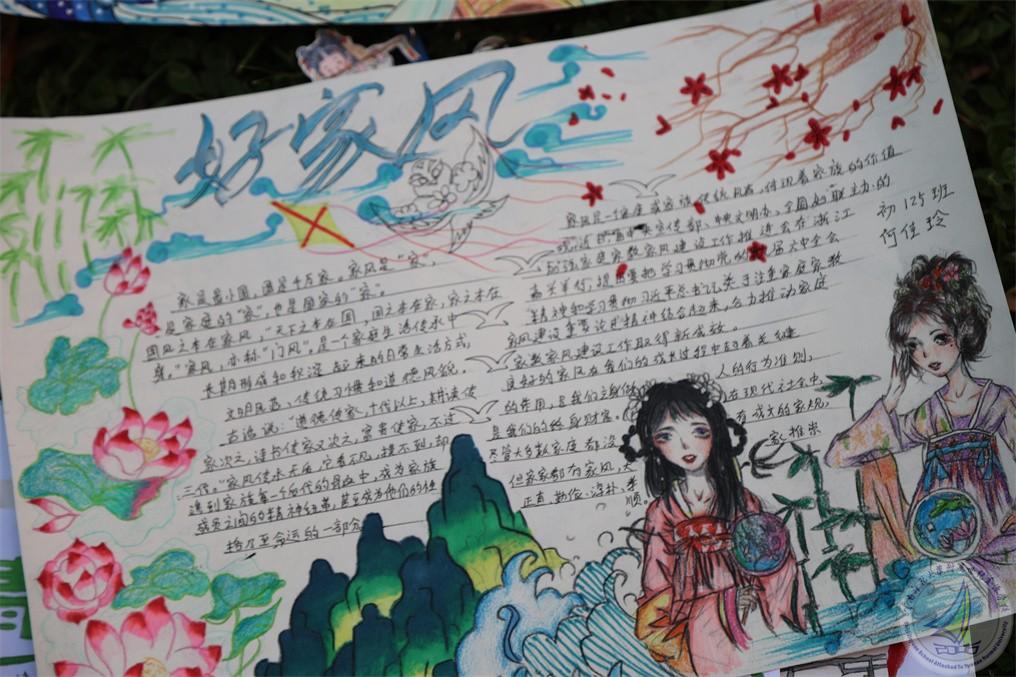 好家风
家是最小国，国是千万家，家风是"家"，
是家庭的"家"，也是国家的"家"。
国风之本在家风，"天下之本在国，国之本在家，家之本在
身。"家风，亦称"门风"。是一个家庭生活传承中
长期形成和积淀起来的日常生活方式，
文明风范、传统习惯和道德风貌。
古语说："道德传家，十代以上，耕读传
家次之，诗书传家又次之，富贵传家，不过
三代。"家风传承无后，它看不见，摸不到，却
遇到家族每一个后代的身血中，成为家族
成员之间的精神纽带，甚至成为他们的性
格乃至命运的一部分
家风是一个家庭或家族传统风范，体现着家族的价值
妇联主办的
加强家庭家教家风建设工作推进会在浙江
嘉兴举行，提出要把学习贯彻党的 届六中全会
精神和学习贯彻习近平总书记关于注重家庭家教
家风建设重要论述精神结合起来，合力推动家庭
家教家风建设工作取得新成效。
良好的家风在我们的成长过程中起着关键
的作用，是我们立身做 人的行为准则，
是我们的终身财富 在现代社会中，
尽管大多数家庭都没 有成文的家规，
但家家都有家风，大 家推崇
正直、勤俭、淳朴、孝
顺。
初125班
何佳玲